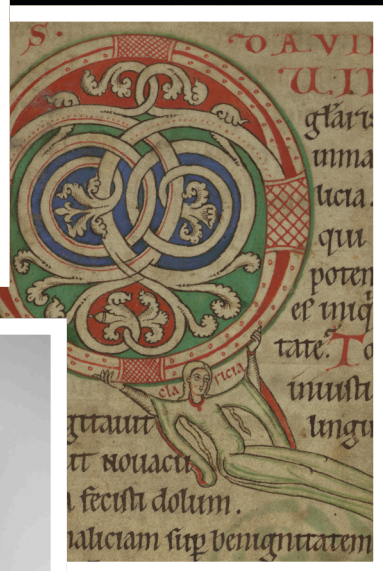 S. DAVI
UI
glari
inma
licia.
qui
poten
es iniq
tate. To
cla ricia
iniusti
gitauit lingu
ut nouacu
fecisti dolum.
aliciam sup benignitatem